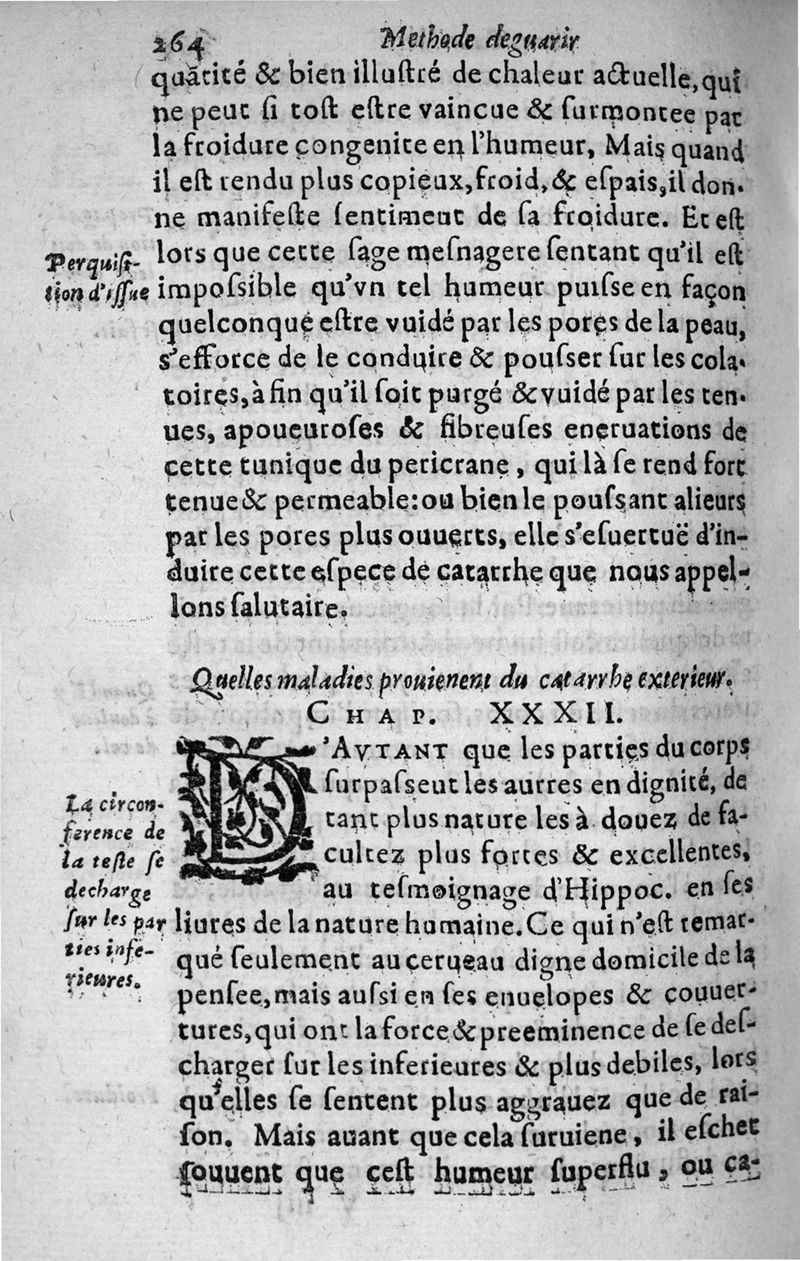 264 Methode deguarir
quãtité & bien illuſtré de chaleur actuelle, qui
ne peut ſi toſt eſtre vaincue & ſurmontee par
la froidure congenite en l'humeur, Mais quand
il eſt rendu plus copieux, froid, & eſpais, il don-
ne manifeſte ſentiment de ſa froidure. Et eſt
lors que cette ſage meſnagere ſentant qu'il eſt
impoſsible qu'vn tel humeur puiſse en façon
quelconque eſtre vuidé par les pores de la peau,
s'efforce de le conduire & pouſser ſur les cola-
toires, à fin qu'il ſoit purgé & vuidé par les ten-
ues, apoueuroſes & fibreuſes eneruations de
cette tunique du pericrane, qui là ſe rend fort
tenue & permeable: ou bien le pouſsant alieurs
par les pores plus ouuerts, elle s'eſuertuë d'in-
duire cette eſpece de catarrhe que nous appel-
lons ſalutaire.
Perquiſi-
tion d'iſſue
Quelles maladies prouienent du catarrhe exterieur.
CHAP. XXXII.
D'AVTANT que les parties du corps
ſurpaſseut les autres en dignité, de
tant plus nature les à douez de fa-
cultez plus fortes & excellentes,
au teſmoignage d'Hippoc. en ſes
liures de la nature humaine. Ce qui n'eſt remar-
qué ſeulement au cerueau digne domicile de la
penſee, mais auſsi en ſes enuelopes & couuer-
tures, qui ont la force & preeminence de ſe deſ-
charger ſur les inferieures & plus debiles, lors
qu'elles ſe ſentent plus aggrauez que de rai-
ſon. Mais auant que cela ſuruiene, il eſchet
ſouuent que ceſt humeur ſuperflu, ou ca-
La circon-
ference de
la teſte ſe
decharge
ſur les par
ties infe-
rieures.